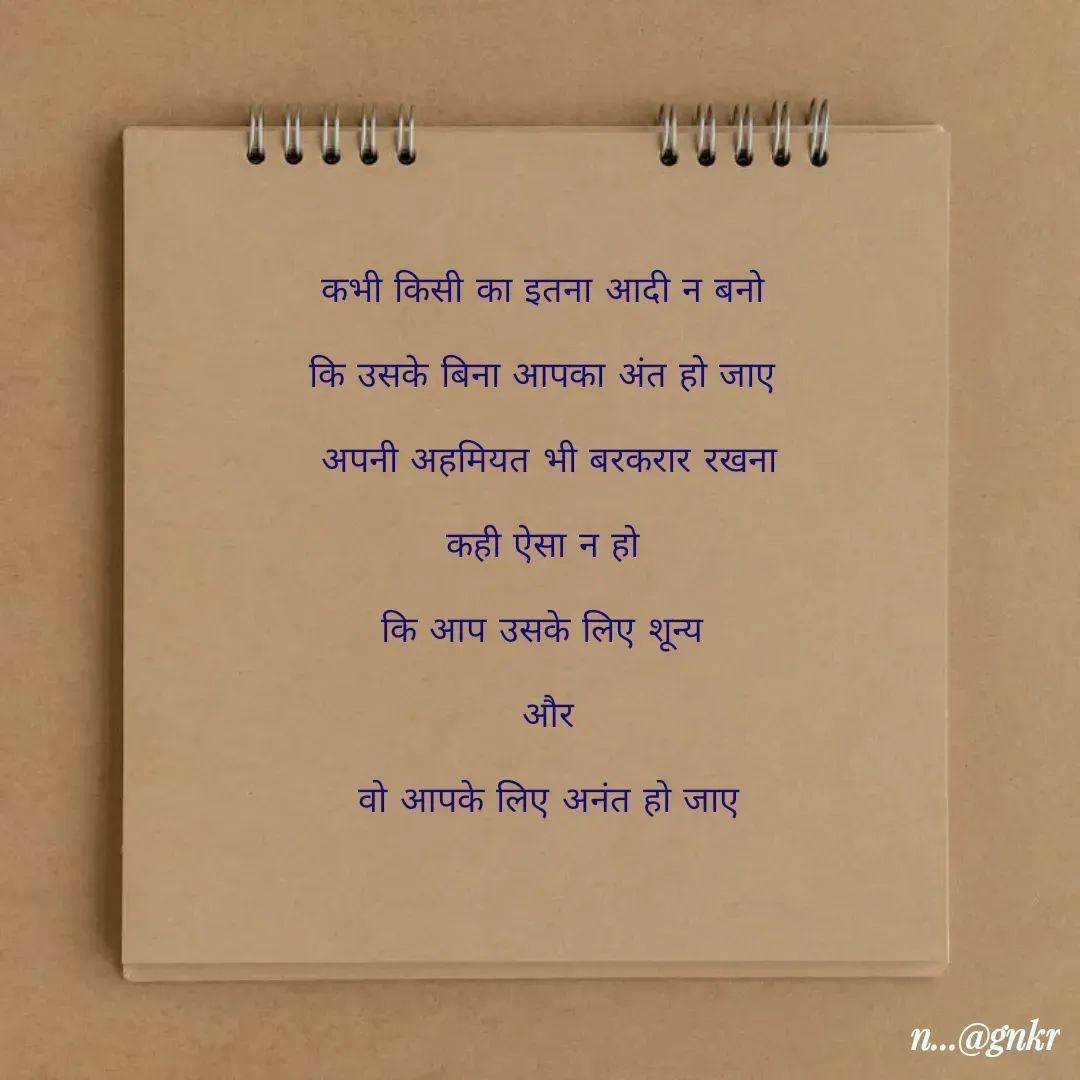 कभी किसी का इतना आदी न बनो
कि उसके बिना आपका अंत हो जाए
अपनी अहमियत भी बरकरार रखना
कही ऐसा न हो
कि आप उसके लिए शून्य
और
वो आपके लिए अनंत हो जाए
n...@gnkr